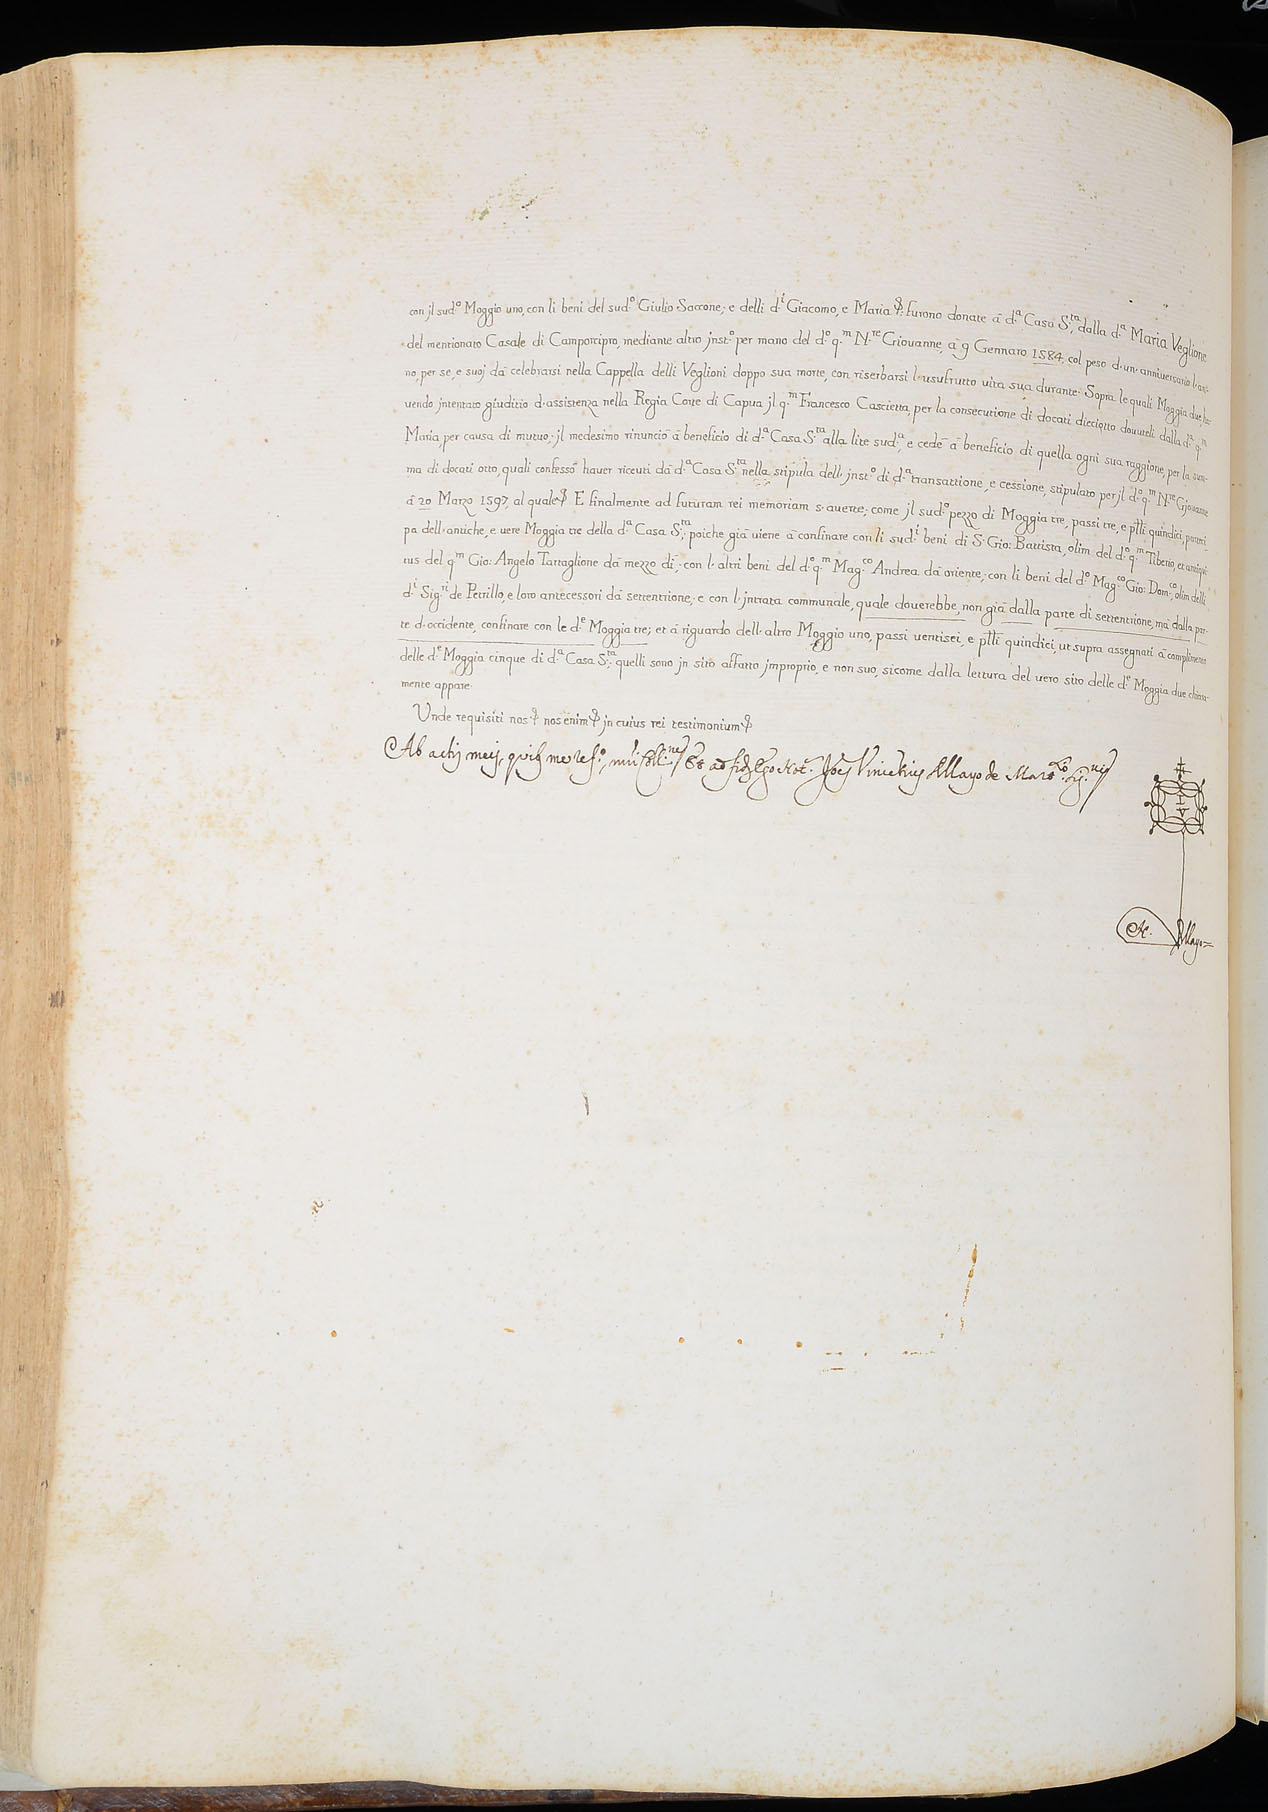 con jl sud.º Moggio uno, con li beni del sud.º Giulio Saccone; e delli d.i Giacomo, e Maria &: furono donate à d.a Casa S.ta, dalla d.a Maria Veglione
del mentionato Casale di Camporcipro, mediante altro jnst.º per mano del d.º q.m N.re Giouanne, à 9 Gennaro 1584, col peso d·un· anniuersario l·an-
no, per se, e suoj dà celebrarsi nella Cappella delli Veglioni doppo sua morte, con riserbarsi l·usufrutto uita sua durante· Sopra le quali Moggia due, ha-
uendo jntentato giuditio d·assistenza nella Regia Corte di Capua jl q.m Francesco Cascietta, per la consecutione di docati dieciotto douuteli dalla d.a q.m
Maria per causa di mutuo; jl medesimo rinunciò à beneficio di d.a Casa S.ta alla lite sud.a, e cedè à beneficio di quella ogni sua raggione, per la sum-
ma di docati otto, quali confessò hauer riceuti dà d.a Casa S.ta nella stipula dell· jnst.º di d.a transattione, e cessione, stipulato per jl d.º q.m N.re Gjouanne
à 20 Marzo 1597, al quale & E finalmente ad futuram rei memoriam s·auerte; come jl sud.º pezzo di Moggia tre, passi tre, e p̃tli quindici, parteci-
pa dell·antiche, e uere Moggia tre della d.a Casa S.ta; poiche già uiene à confinare con li sud.i beni di S· Gio: Battista, olim del d.º q.m Tiberio, et antiqui-
tus del q.m Gio: Angelo Tartaglione dà mezzo dì; con l·altri beni del d.º q.m Mag.co Andrea dà oriente; con li beni del d.º Mag.co Gio: Dom.co, olim delli
d.i Sig.ri de Petrillo, e loro antecessori dà settentrione; e con l·jntrata communale, quale douerebbe, non già dalla parte di settentrione, mà dalla par-
te d·occidente, confinare con le d.e Moggia tre; et à riguardo dell·altro Moggio uno, passi uentisei, e p̃tli quindici, ut supra assegnati à complimento
delle d.e Moggia cinque di d.a Casa S.ta; quelli sono jn sito affatto jmproprio, e non suo, sicome dalla lettura del uero sito delle d.e Moggia due chiara-
mente appare·
Unde requisiti nos & nos enim & jn cuius rei testimonium &
Ab actis meis, quib me ref.º, Et ad fid. Ego Not.
N. Mayo=